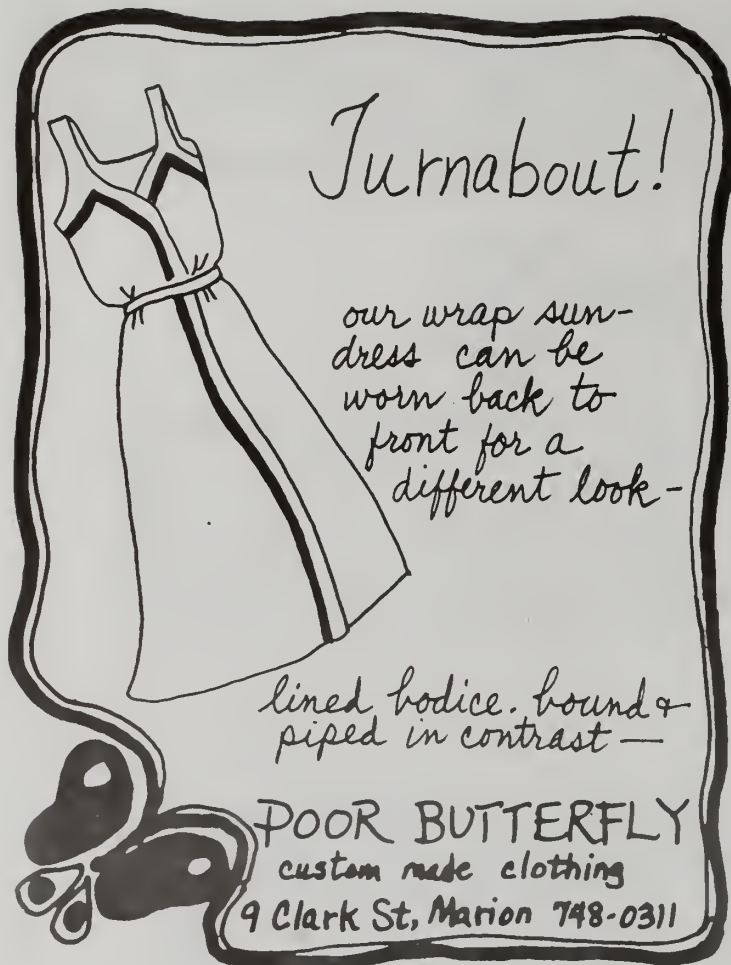 Turnabout!
our wrap sun-
dress can be
worn back to
front for a
different look-
lined bodice. bound &
piped in contrast —
POOR BUTTERFLY
custom made clothing
9 Clark St, Marion 748-0311